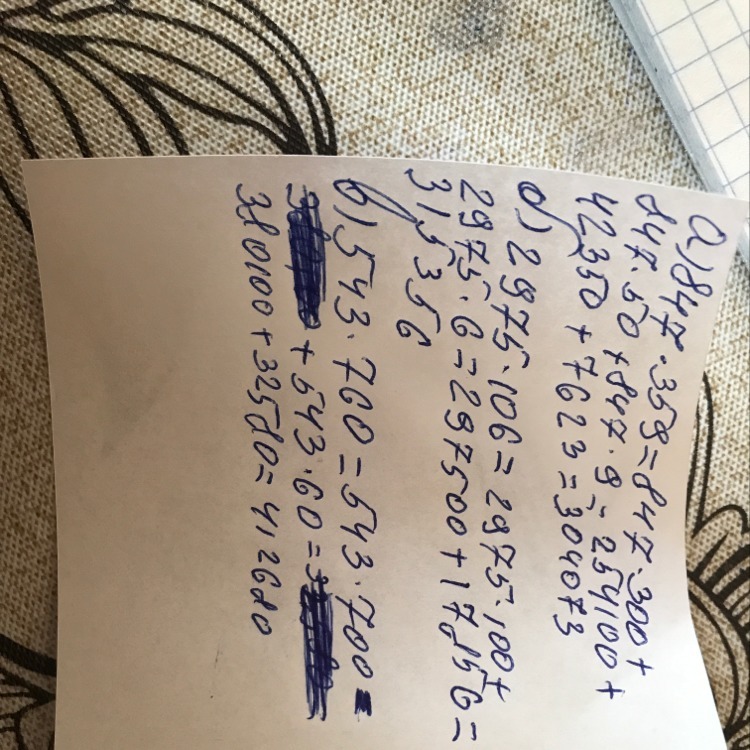 а) 847·359=847·300+
847·50+847·9=254100+
42350+7623=304073
б) 2975·106=2975·100+
2975·6=297500+17856=
315356
в) 543·700=543·700=
+543·60=
380100+32580=412680